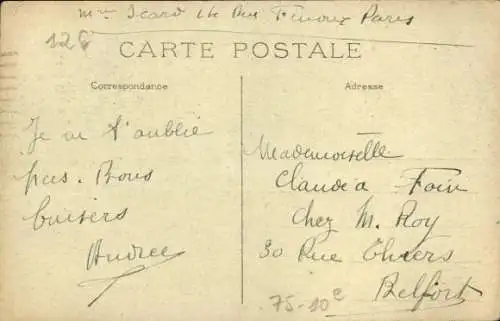 Mme Icard 14 Rue Fénoux Paris
12€
CARTE POSTALE
Correspondance
Adresse
Je ne t'oublie
pas. Bons
baisers
Andrée
Mademoiselle
Claudia Foin
chez M. Roy
30 Rue Thiers
Belfort
75-10€